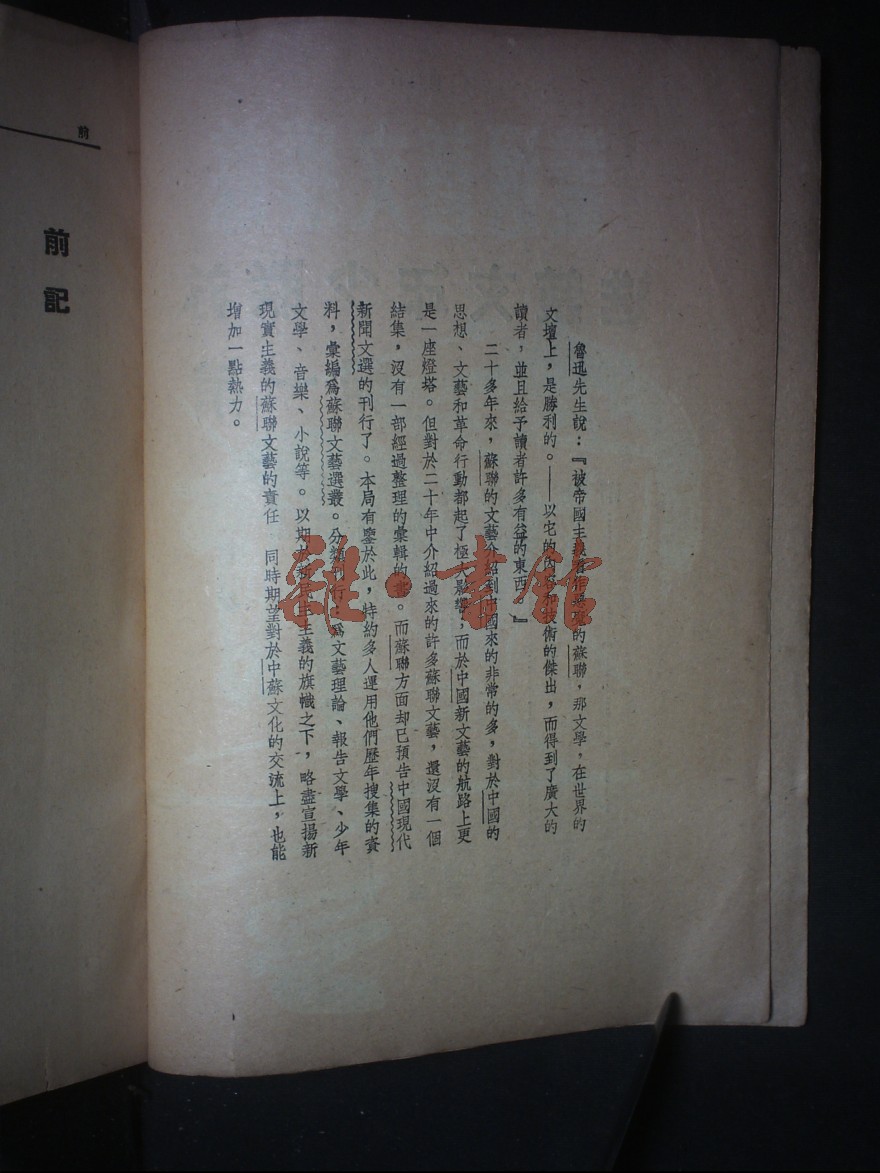 魯迅先生說：『被帝國主義者作的蘇聯，那文學，在世界的
文壇上，是勝利的。——以它的內容和技術的傑出，而得到了廣大的
讀者，並且給予讀者許多有益的東西。』
二十多年來，蘇聯的文藝介紹到中國來的非常的多，對於中國的
思想、文藝和革命行動都起了極大影響，而於中國新文藝的航路上更
是一座燈塔。但對於二十年中介紹過來的許多蘇聯文藝，還沒有一個
結集，沒有一部經過整理的彙輯的書。而蘇聯方面却已預告中國現代
新聞文選的刊行了。本局有鑒於此，特約多人運用他們歷年搜集的資
料，彙編爲蘇聯文藝選叢。分類刊行：爲文藝理論、報告文學、少年
文學、音樂、小說等。以期於新民主主義的旗幟之下，略盡宣揚新
現實主義的蘇聯文藝的責任　同時期望對於中蘇文化的交流上，也能
增加一點熱力。
前
前記
雜·書館